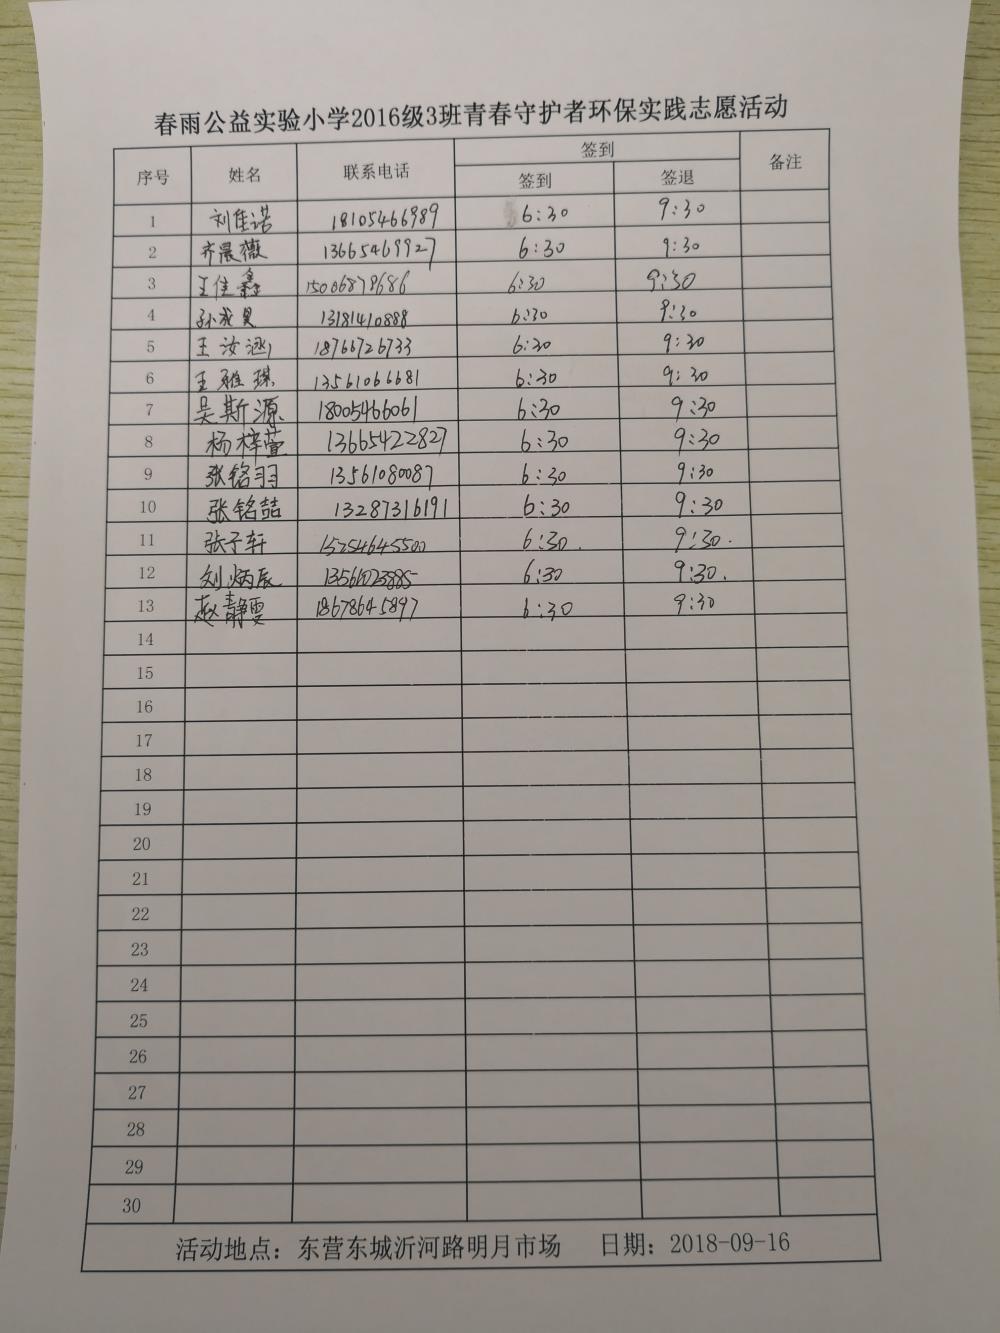 春雨公益实验小学2016级3班青春守护者环保实践志愿活动
序号 姓名 联系电话 签到 备注
签到 签退
1 刘佳诺 18105466989 6:30 9:30
2 齐晨薇 13665469927 6:30 9:30
3 王佳鑫 15006878686 6:30 9:30
4 孙 昊 13181410888 6:30 9:30
5 王汝涵 18766726733 6:30 9:30
6 王雅琪 13561066681 6:30 9:30
7 吴斯源 18005466061 6:30 9:30
8 杨梓萱 13665422827 6:30 9:30
9 张铭羽 13561080087 6:30 9:30
10 张铭喆 13287316191 6:30 9:30
11 张子轩 15254645500 6:30. 9:30.
12 刘炳辰 13561023885 6:30 9:30.
13 赵静雯 18678645897 6:30 9:30
14
15
16
17
18
19
20
21
22
23
24
25
26
27
28
29
30
活动地点：东营东城沂河路明月市场 日期：2018-09-16